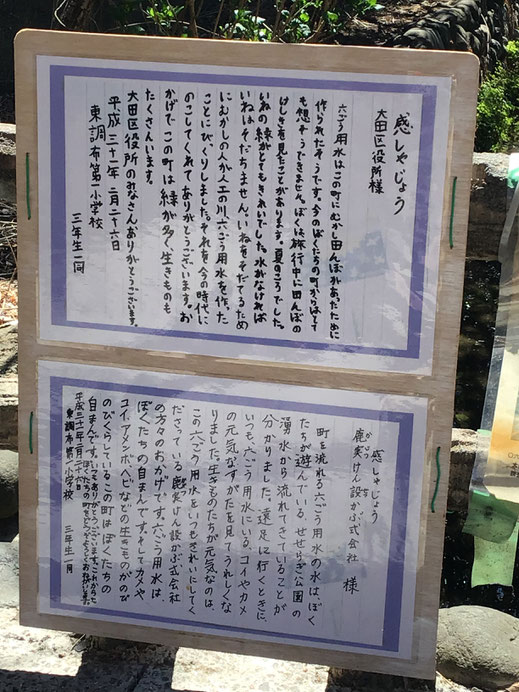 感しゃじょう
大田区役所様
六ごう用水はこの町にむかし田んぼがあったために
作られたそうです。今のぼくたちの町からはとて
も想ぞうできません。ぼくは旅行中に田んぼの
けしきを見たことがあります。夏のころでした。
いねの緑がとてもきれいでした。水がなければ
いねはそだちません。いねをそだてるため
にむかしの人が人工の川、六ごう用水を作った
ことにびっくりしました。それを今の時代に
のこしてくれてありがとうございます。お
かげで、この町は緑が多く、生きものも
たくさんいます。
大田区役所のみなさんありがとうございます。
平成三十一年二月二十六日
東調布第一小学校
三年生一同
感しゃじょう
鹿実けん設かぶ式会社 様
町を流れる六ごう用水の水は、ぼく
たちが遊んでいる、せせらぎ公園の
湧水から流れてきていることが
分かりました。遠足に行くときに、
いつも、六ごう用水にいる、コイやカメ
の元気なすがたを見てうれしくな
りました。生きものたちが元気なのは、
この六ごう用水をいつもきれいにしてく
ださっている鹿実けん設かぶ式会社
の方々のおかげです。六ごう用水は、
ぼくたちの自まんです。そしてカメや
コイ、アメンボ、ヘビなどの生きものがのび
のびくらしているこの町はぼくたちの
自まんです。いつもありがとうございます。これからも
ぼくたちの町をどうぞよろしくお願いします。
平成三十一年二月二十六日
東調布第一小学校 三年生一同